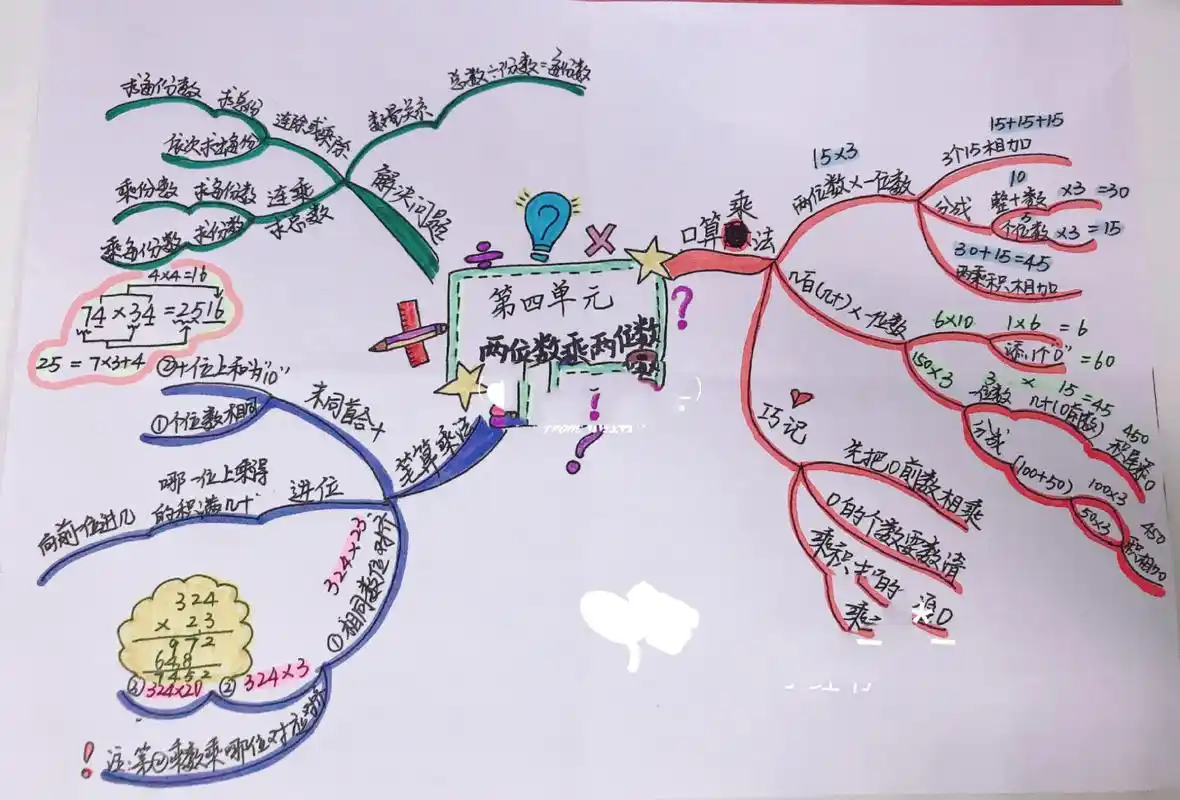 第四单元
两位数乘两位数
口算乘法
15×3
两位数×一位数
15+15+15
3个15相加
分成
10
整十数 ×3 =30
5
个位数 ×3 =15
30+15=45
两乘积相加
几百(几十)×一位数
6×10
1×6 =6
添1个"0" =60
150×3
3 × 15 =45
一位数
450
积末尾0
分成
(100+50)
100×3
50×3
450
积相加
巧记
先把0前数相乘
0的个数要数清
乘积
的
添0
解决问题
数量关系
总数÷份数=每份数
连除或乘除
求总份
求每份数
依次求出每份
连乘
求总数
求每份数
乘份数
求份数
乘每份数
4×4=16
74×34=2516
25=7×3+4
笔算乘法
末同首合十
②十位上和为"10"
①个位数相同
进位
哪一位上乘得
的积满几十
向前一位进几
324×23
①相同数位对齐
②324×3
③324×20
324
×23
972
648
7452
注:第②乘数乘哪位对应对齐